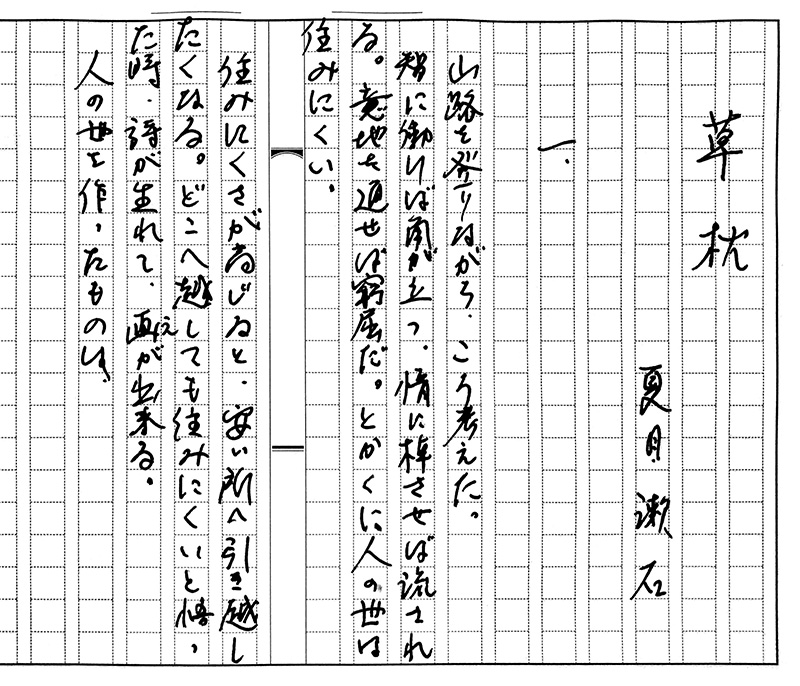 草枕
夏目漱石
一.
山路を登りながら、こう考えた。
智に働けば角が立つ、情に棹させば流され
る。意地を通せば窮屈だ。とかくに人の世は
住みにくい。
住みにくさが高じると、安い所へ引き越し
たくなる。どこへ越しても住みにくいと悟っ
た時、詩が生れて、画が出来る。
え
人の世を作ったものは、